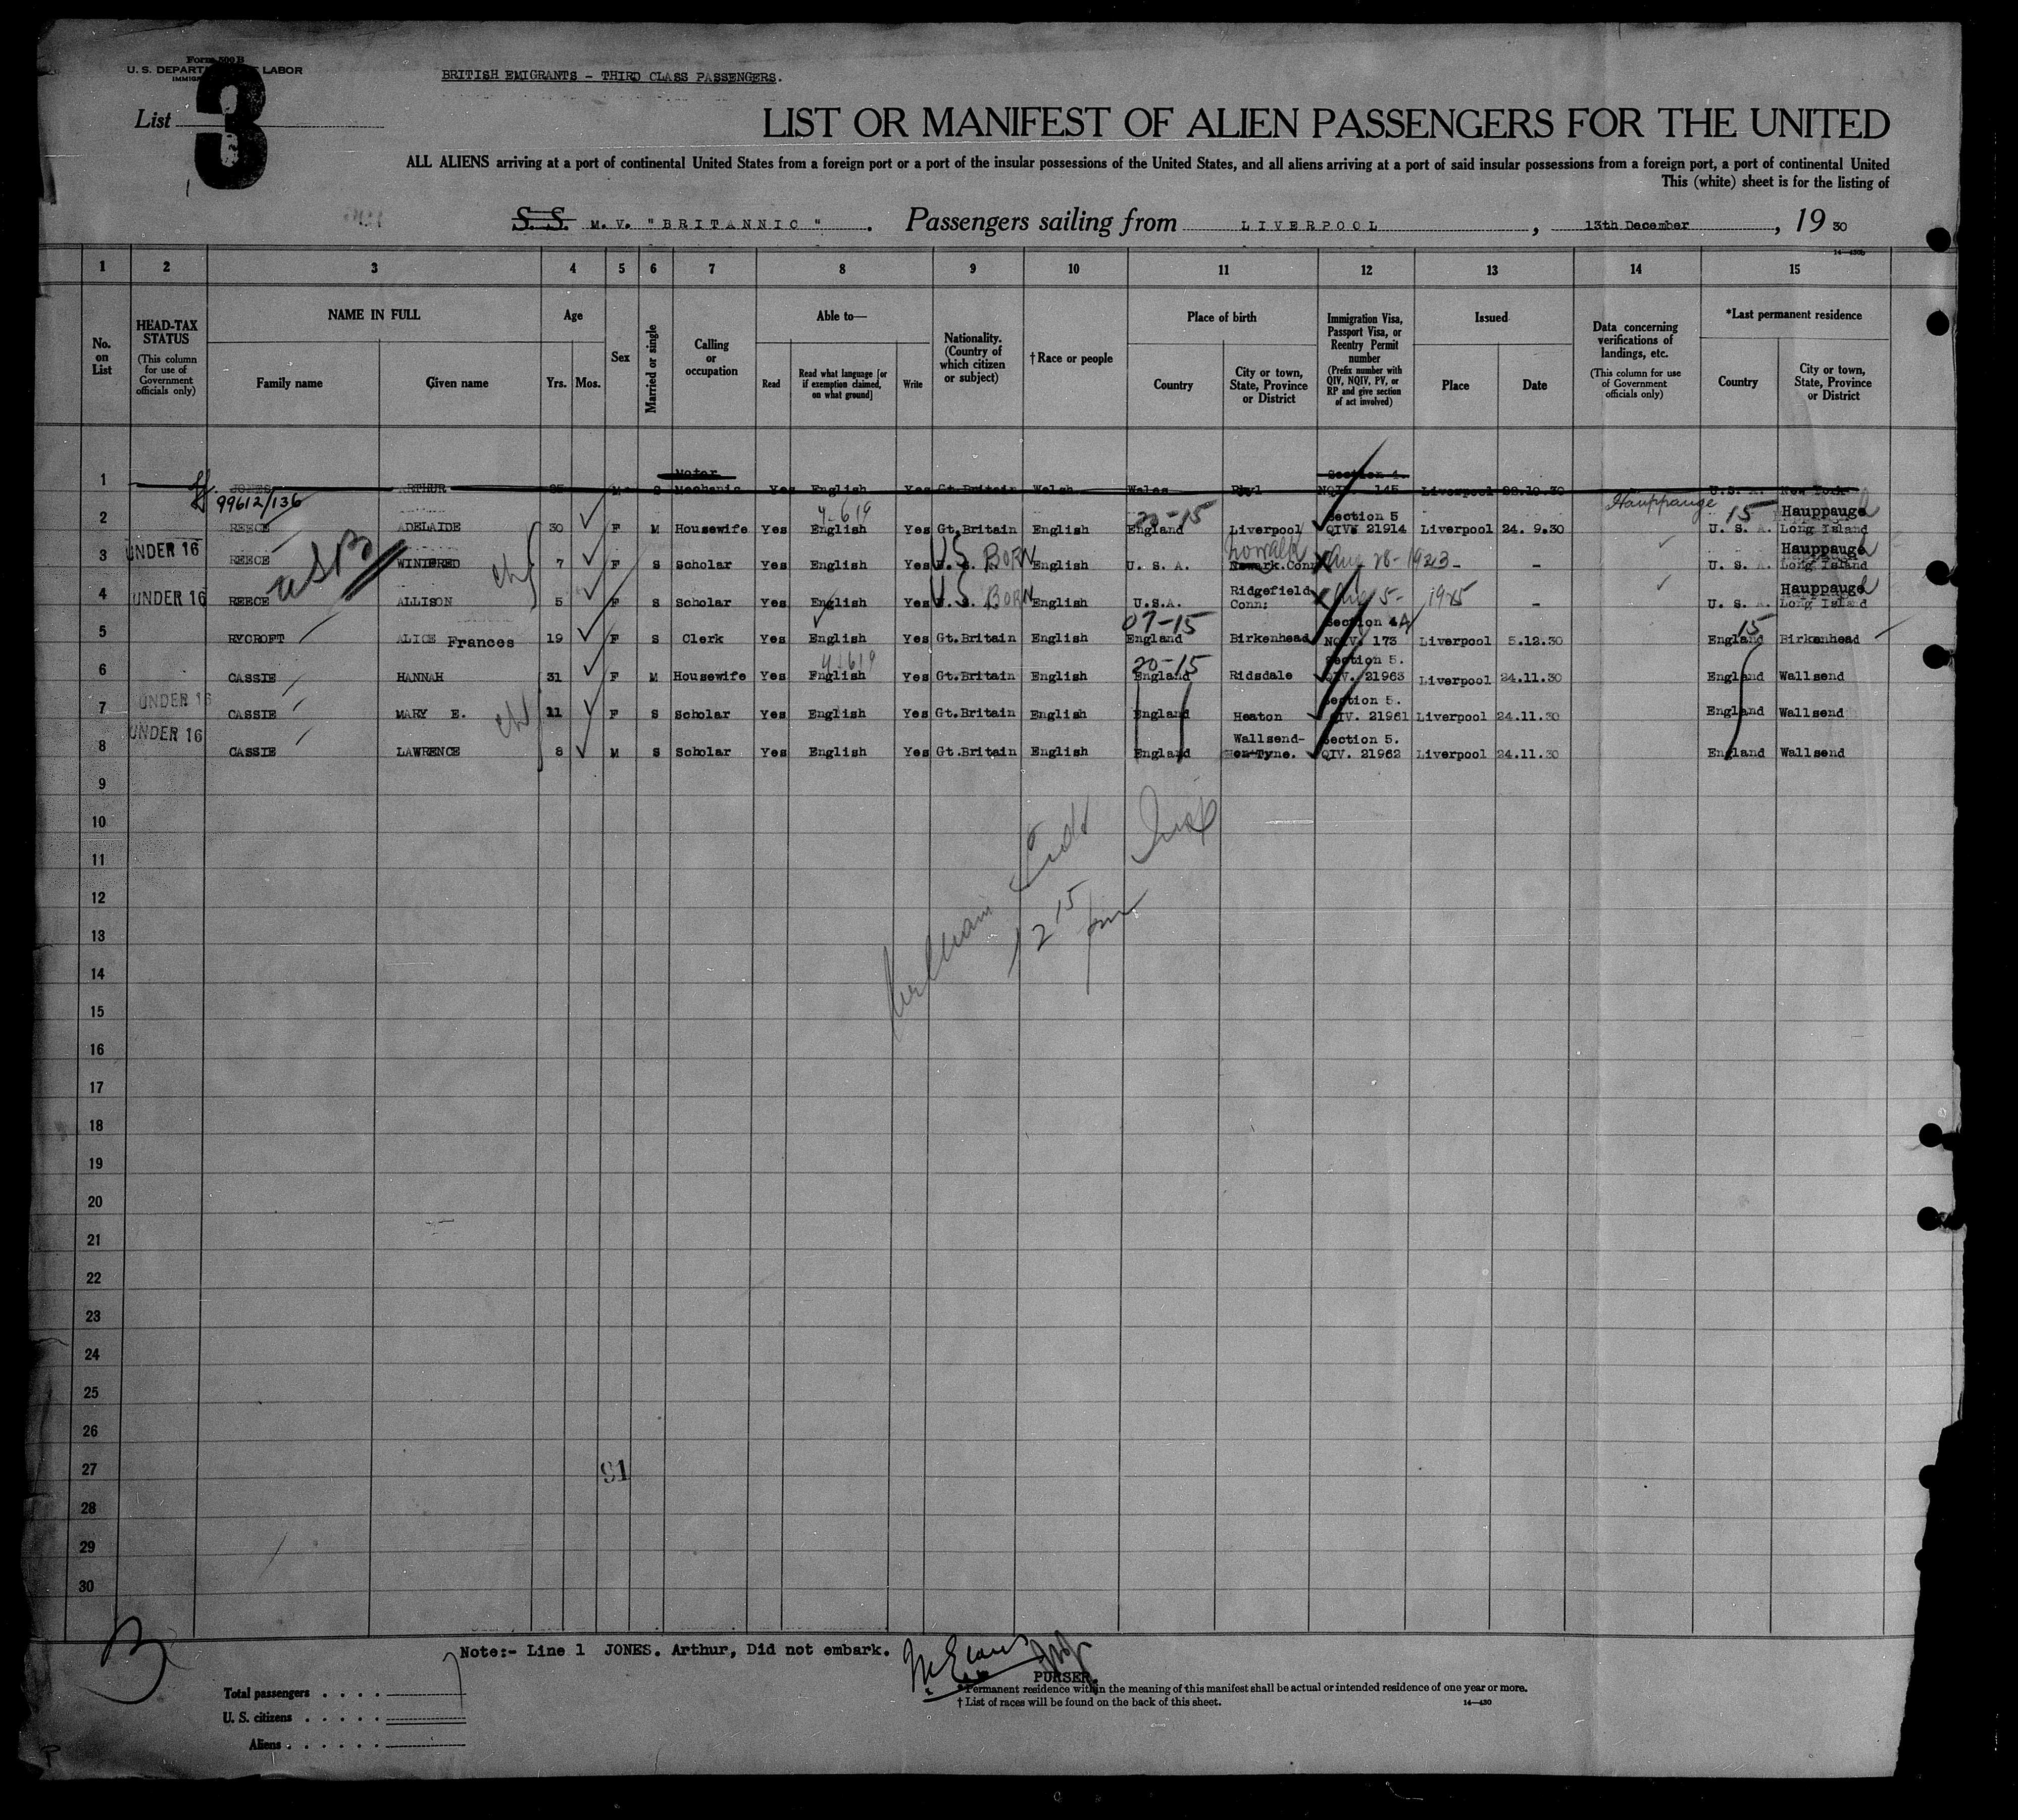 Form 500 B
U. S. DEPARTMENT OF LABOR
BRITISH EMIGRANTS - THIRD CLASS PASSENGERS.
List 3
LIST OR MANIFEST OF ALIEN PASSENGERS FOR THE UNITED
ALL ALIENS arriving at a port of continental United States from a foreign port or a port of the insular possessions of the United States, and all aliens arriving at a port of said insular possessions from a foreign port, a port of continental United
This (white) sheet is for the listing of
S. S. M. V. "BRITANNIC". Passengers sailing from LIVERPOOL, 13th December, 19 30
14-430b
1 2 3 4 5 6 7 8 9 10 11 12 13 14 15
No. on List
HEAD-TAX STATUS (This column for use of Government officials only)
NAME IN FULL Family name Given name
Age Yrs. Mos.
Sex
Married or single
Calling or occupation
Able to— Read Read what language [or if exemption claimed, on what ground] Write
Nationality. (Country of which citizen or subject)
† Race or people
Place of birth Country City or town, State, Province or District
Immigration Visa, Passport Visa, or Reentry Permit number (Prefix number with QIV, NQIV, PV, or RP and give section of act involved)
Issued Place Date
Data concerning verifications of landings, etc. (This column for use of Government officials only)
*Last permanent residence Country City or town, State, Province or District
1 JONES ARTHUR M S Motor Mechanic Yes English Yes Gt.Britain Welsh Wales Rhyl Section 4 NQIV 145 Liverpool U.S.A. New York
99612/136 4-619 20-15 Hauppauge 15
2 REECE ADELAIDE 30 F M Housewife Yes English Yes Gt.Britain English England Liverpool Section 5 QIV. 21914 Liverpool 24. 9.30 U. S. A. Hauppauge Long Island
3 UNDER 16 REECE WINIFRED 7 F S Scholar Yes English Yes U.S. BORN English U. S. A. Newark.Conn Aug 28-1923 - - U. S. A. Hauppauge Long Island
USB
4 UNDER 16 REECE ALLISON 5 F S Scholar Yes English Yes U.S. BORN English U.S.A. Ridgefield Conn: 5- 1925 - U. S. A. Hauppauge Long Island
07-15 15
5 RYCROFT ALICE Frances 19 F S Clerk Yes English Yes Gt.Britain English England Birkenhead Section 4 NQIV. 173 Liverpool 5.12.30 England Birkenhead
4-619 20-15
6 CASSIE HANNAH 31 F M Housewife Yes English Yes Gt.Britain English England Ridsdale Section 5. QIV. 21963 Liverpool 24.11.30 England Wallsend
7 UNDER 16 CASSIE MARY E. 11 F S Scholar Yes English Yes Gt.Britain English England Heaton Section 5. QIV. 21961 Liverpool 24.11.30 England Wallsend
8 UNDER 16 CASSIE LAWRENCE 8 M S Scholar Yes English Yes Gt.Britain English England Wallsend-on-Tyne. Section 5. QIV. 21962 Liverpool 24.11.30 England Wallsend
9
10
11
12
13
12 15 pm
14
15
16
17
18
19
20
21
22
23
24
25
26
27
91
28
29
30
Note:- Line 1 JONES. Arthur, Did not embark.
PURSER.
Total passengers . . . .
U. S. citizens . . . . .
Aliens . . . . . .
*Permanent residence within the meaning of this manifest shall be actual or intended residence of one year or more.
† List of races will be found on the back of this sheet.
14-430